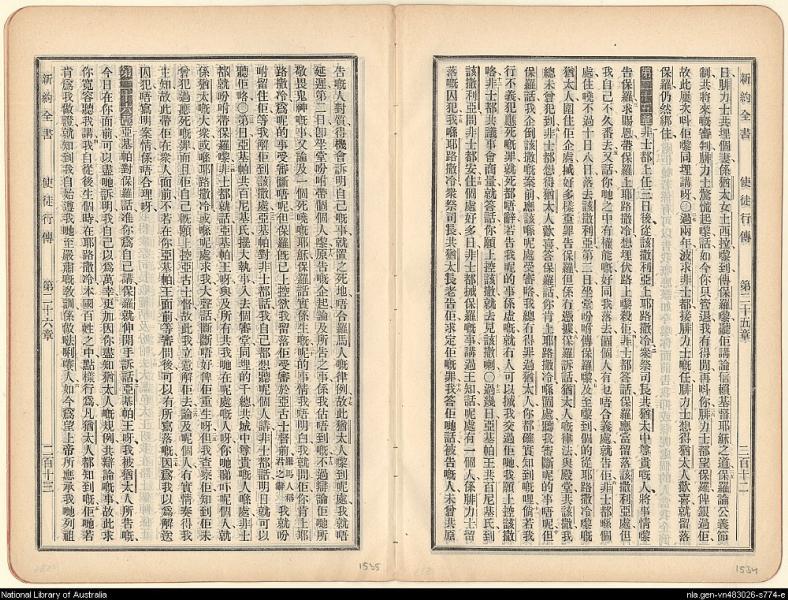 日腓力士共埋個妻係猶太女土西拉嚟到傳保羅嚟聽佢講論信賴基督耶穌之道保羅論公義節
制共將來嘅審判腓力士驚慌起嚟話如今你只管退我有得閒再呌你腓力士都望保羅俾銀過佢
故此屢次呌佢嚟同埋講呀〇過兩年波求非士都接腓力士嘅任腓力士想得猶太人歡喜就留落
保羅仍然綁住
第二十五章非士都上任三日後從該撒利亞上耶路撒冷衆祭司長共猶太中尊貴嘅人將事情嚟
告保羅求賜恩帶保羅上耶路撒冷想埋伏路上嚟殺佢非士都答話保羅應當留落該撒利亞處但
我自己不久番去又話你哋之中有權能嘅好同我落去倘個人有乜唔合義處就告佢非士都喺個
處住唔過十日八日落去該撒利亞第二日坐堂吩咐傳保羅嚟及至嚟到個的從耶路撒冷嚟嘅
猶太人圍住佢企處搣好多樣重罪告保羅但係冇憑據保羅訴話猶太人嘅律法與殿堂共該撒我
總未曾犯到非士都想得猶太人歡喜答保羅話你肯上耶路撒冷喺個處聽我審斷呢的事唔呢但
保羅話我企倒該撒嘅案前應該喺呢處受審咯我總冇得罪過猶太人你都確實知到嘅哩倘若我
行不義犯應死嘅罪就死都唔辭若告我呢的事係虛嘅就冇人可以搣我交過佢哋我願上控該撒
咯非士都共議事會商量就答話你願上控該撒就去見該撒喇〇過幾日亞基帕王共百尼基氏到
該撒利亞問非士都安住個處好多日非士都搣保羅嘅事講過王知話呢處有一個人係腓力士留
落嘅囚犯我喺耶路撒冷衆祭司長共猶太長老告佢求定佢嘅罪我答佢哋話被告嘅人未曾共原
新約全書 使徒行傳 第二十五章 二百十二
1534
告嘅人對質得機會訴明自己嘅事就置之死地唔合羅馬人嘅律例故此猶太人嚟到呢處我就唔
延遲第二日卽坐堂吩咐帶個個人嚟原告嘅企起論及所告之事係我估唔到嘅不過辯論佢哋所
敬畏鬼神嘅事又論及一個死嘅耶穌保羅話質係生嘅呢的事情我唔明白我就問佢你肯上耶
路撒冷爲呢的事受審斷唔呢但保羅旣已上控於我留落佢受審於亞古士督前君之尊稱羅馬人稱我就吩
咐留住佢等我解佢到該撒處亞基帕對非士都話我自己都想聽呢個人講非士都話明日就可以
聽佢咯〇第二日亞基帕共百尼基氏擺大執事入去個審堂同埋的千總共城中尊貴嘅人喺處非士
都就吩咐帶保羅嚟非士都就話亞基帕王呀與及所有共我哋在呢處嘅人呀你哋睇吓呢個人就
係猶太嘅大衆或喺耶路撒冷或喺呢處求我大聲話斷斷唔好俾佢重生呀但我查察佢知到佢未
曾犯過應死嘅罪而且佢自己旣願上控亞古士督故此我立意解佢去論及呢個人冇實情奏得我
主知故此帶佢在衆人面前不若在你亞基帕王面前等審問後可以有所寫落嘅因爲我以爲解送
囚犯唔寫明案情係唔合理呀
第二十六章亞基帕對保羅話准你爲自己講保羅就伸開手訴話亞基帕王呀我被猶太人所告嘅
今日在你面前可以盡哋訴明我自己以爲萬幸更加因你盡知猶太人嘅規例共辯論嘅事故此求
你寬容聽我講我自從後生個時在耶路撒冷本國百姓之中點樣行爲凡猶太人都知到嘅佢哋若
肯爲我做證就知到我自始遵我哋至嚴肅嘅教訓係做㗎唎㘔人如今爲望上帝所應承我哋列祖
新約全書 使徒行傳 第二十六章 二百十三
1535
National Library of Australia
nla.gen-vn483026-s774-e